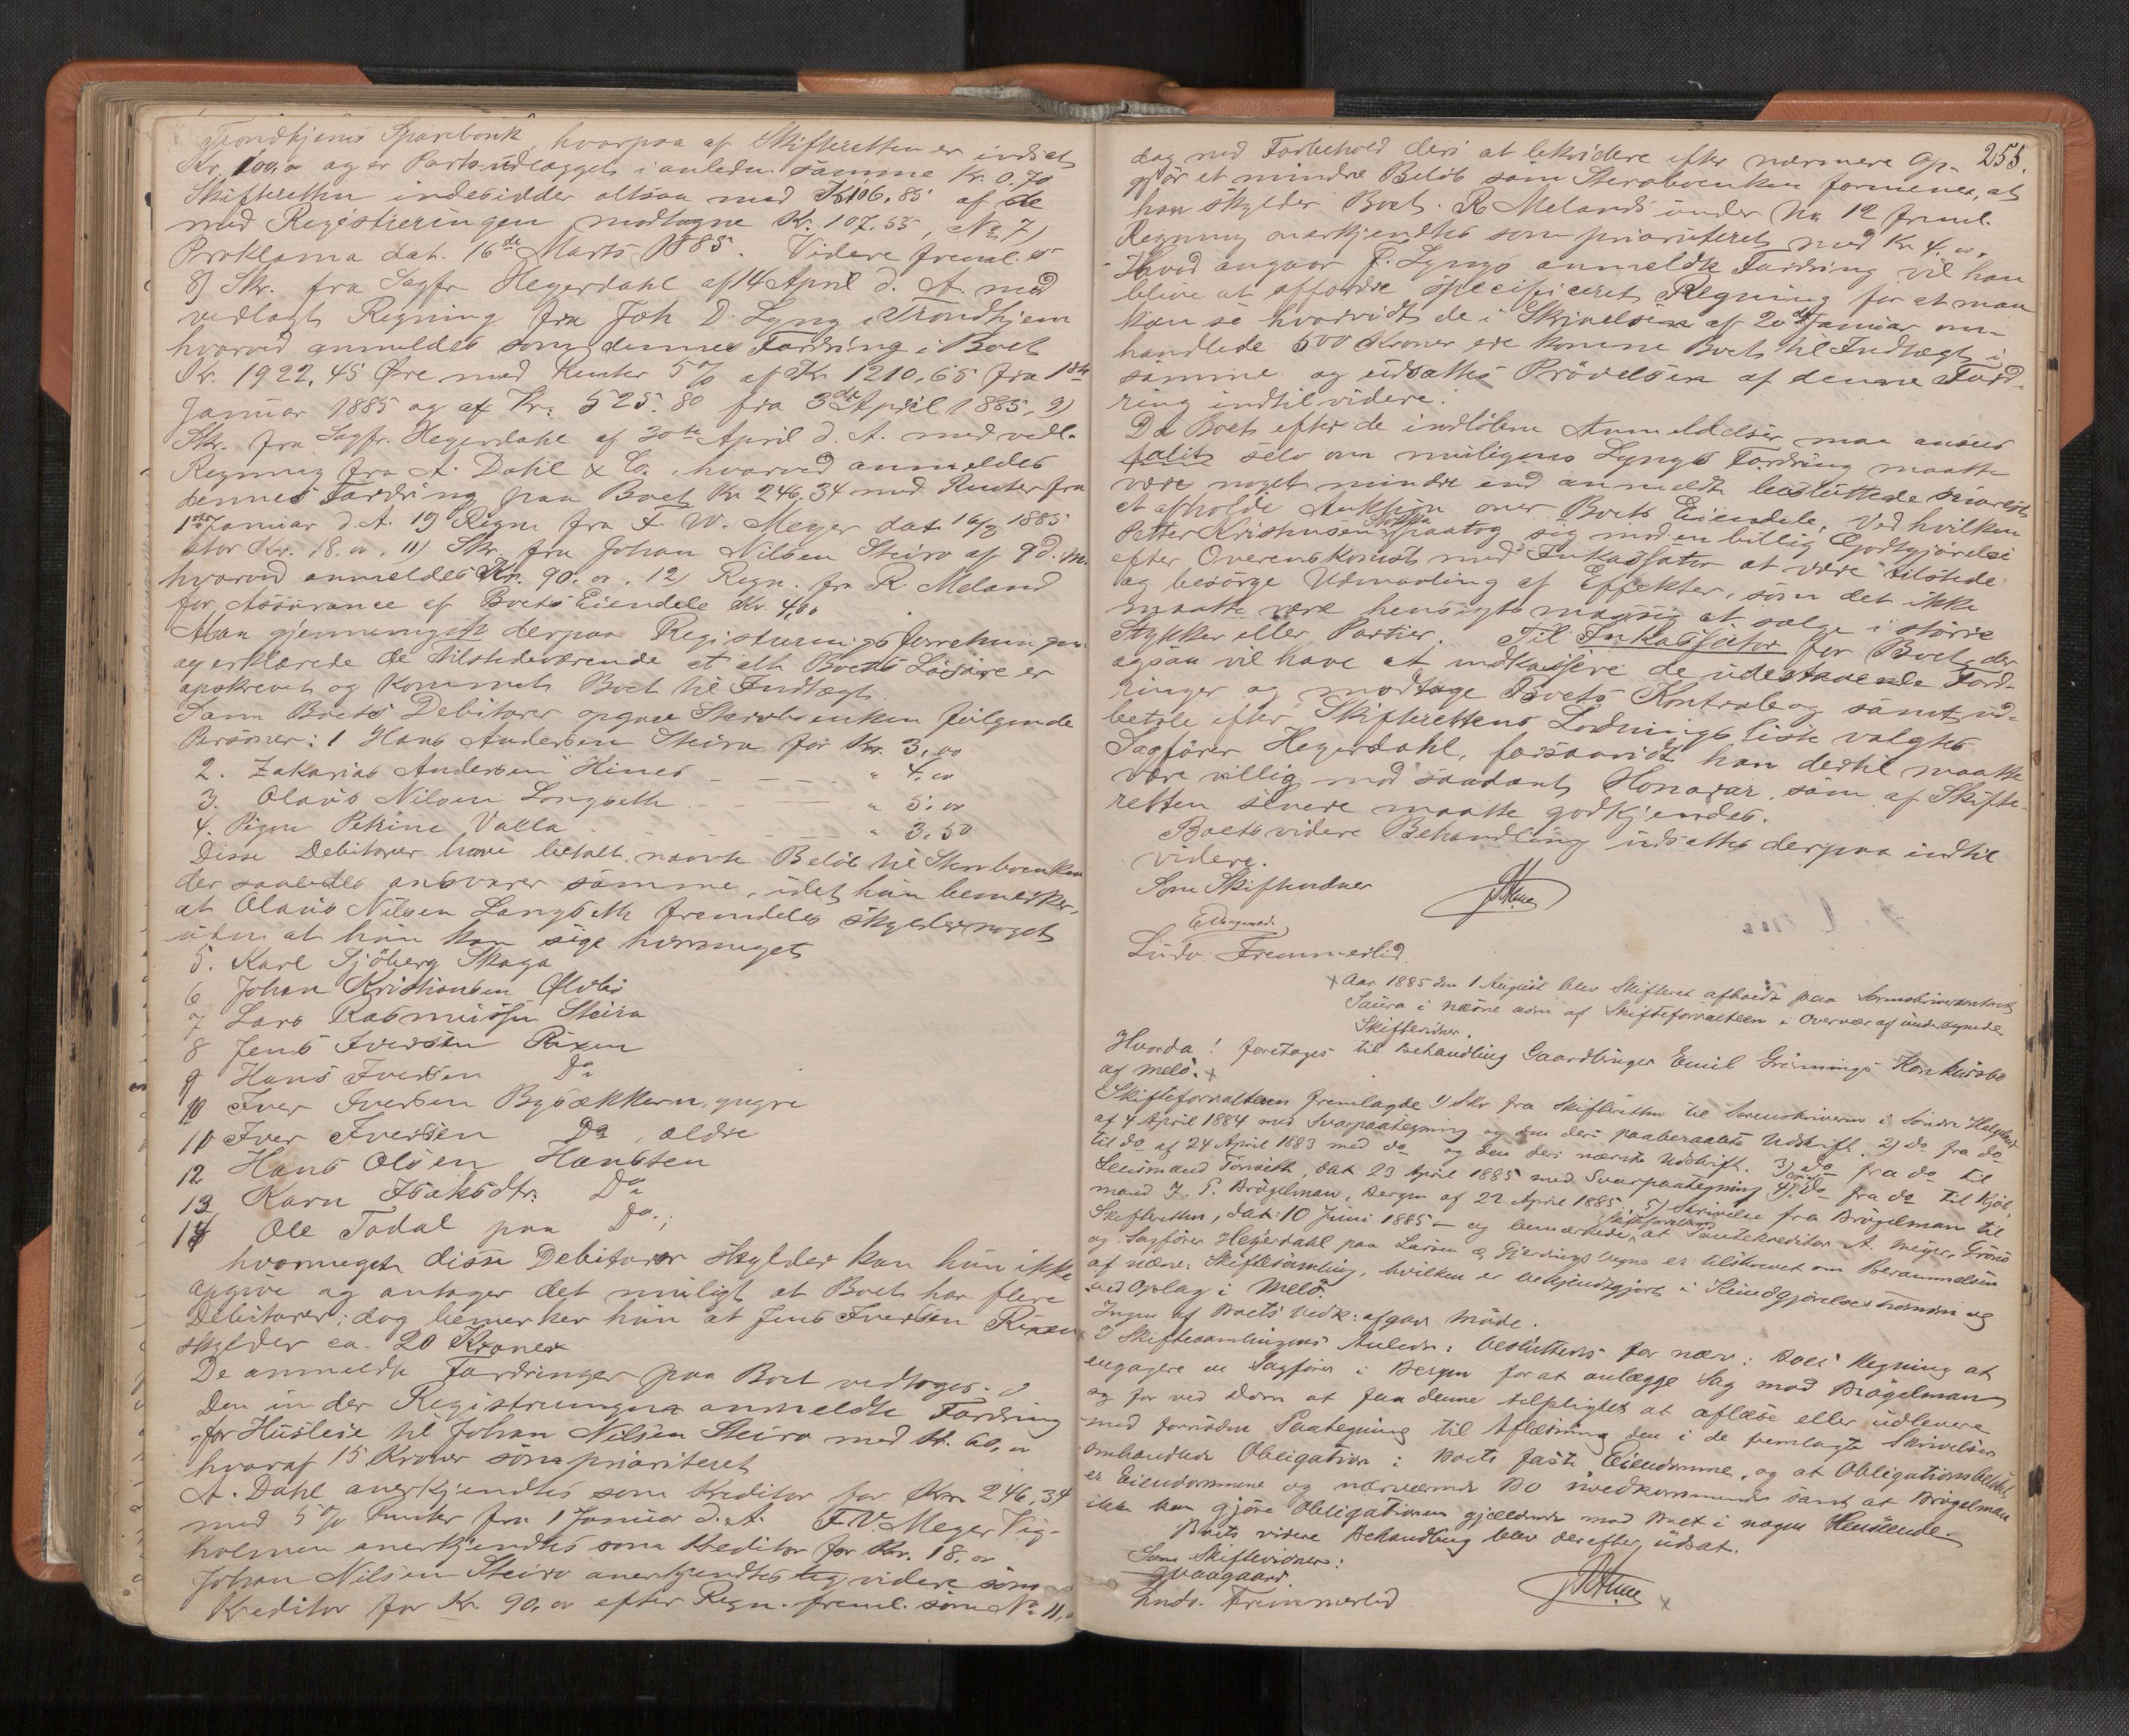 Trondhjems Sparebank, hvorpaa af Skifteretten er indsat
Kr. 100,00 og er Porto udlagget i anledn. samme Kr. 0.70
Skifteretten indesidder altsaa med Kr 106,85 af de
med Registreringen modtagne Kr. 107.55, No 7)
Proklama dat. 16de Marts 1885. Videre freml.
8) Skr. fra Sagfr Hegerdahl af 14 April d. A. med
vedlagt Regning fra Joh D. Lyng i Trondhjem
hvorved anmeldes som dennes Fordring i Boet
Kr. 1922,45 Øre med Renter 5 % af Kr. 1210,65 fra 1ste
Januar 1885 og af Kr. 525.80 fra 3die April 1885, 9)
Skr. fra Sagfr. Hegerdahl af 30te April d. A. med vedl.
Regning fra A. Dahl & Co. hvorved anmeldes
dennes Fordring paa Boet Kr 246,34 med Renter fra
1ste Januar d. A. 10) Regn fra F. W. Meyer dat 16/3 1885
stor Kr. 18.00. 11) Skr. fra Johan Nilsen Steiro af 9 d. M.
hvorved anmeldes Kr. 90.00. 12) Regn. fra R. Meland
for Assurance af Boets Eiendele Kr. 4,00
Man gjennemgik derpaa Registreringsforretningen
og erklærede de tilstedeværende at alt Boets Løsøre er
opskrevet og kommet Boet til Indtægt.
Som Boets Debitorer opgav Stervboenken følgende
Personer: 1 Hans Andersen Steiro for Kr. 3,00
2. Zakarias Andersen Hines — — — " 4,00
3. Olaus Nilsen Langseth — — " 5,00
4. Pigen Petrine Valla — — — " 3,50
Disse Debitorer have betalt nævnte Beløb til Stervboenken
der saaledes ansvarer samme, idet hun bemerker,
at Olaus Nilsen Langseth fremdeles skylder noget
uden at hun kan sige hvormeget
5. Karl Sjöberg Skaga
6 Johan Kristiansen Ølvli
7 Lars Rasmussen Steiro
8 Jens Iversen Rixen
9 Hans Iversen Do
10 Iver Iversen Bysækkern, yngre
11 Iver Iversen Do, ældre
12 Hans Olsen Hansten
13 Karn Isaksdtr. Do
14 Ole Todal paa Do;
hvormeget disse Debitorer skylder kan hun ikke
opgive og antager det muligt at Boet har flere
Debitorer; dog bemerker hun at Jens Iversen Rixen
skylder ca. 20 Kroner
De anmeldte Fordringer paa Boet vedtoges.
Den under Registreringen anmeldte Fordring
for Husleie til Johan Nilsen Steiro med Kr. 60,00
hvoraf 15 Kroner som prioriteret
A. Dahl anerkjendtes som Kreditor for Kr. 246,34
med 5 % Renter fra 1 Januar d. A. F. W. Meyer Vig-
holmen anerkjendtes som Kreditor for Kr. 18.00
Johan Nilsen Steiro anerkjendtes videre som
Kreditor for Kr. 90,00 efter Regn. freml. som No 11,
255.
dog med Forbehold deri at likvidere efter nærmere Op-
gjør et mindre Beløb som Stervboenken formener, at
han skylder Boet. R Melands under No 12 freml.
Regning anerkjendtes som prioriteret med Kr 4.00.
Hvad angaar J. Lyngs anmeldte Fordring vil han
blive at affordre specificeret Regning for at man
kan se hvorvidt de i Skrivelsen af 20de Januar om-
handlede 500 Kroner ere komne Boet til Indtægt i
samme og udsattes Prøvelsen af denne Ford-
ring indtil videre.
Da Boet efter de indløbne Anmeldelser maa ansees
falit selv om muligens Lyngs Fordring maatte
være noget mindre end anmeldt besluttede snarest
at afholde Auktion over Boets Eiendele. Ved hvilken
Petter Kristensen paatog sig mod en billig Godtgjørelse
efter Overenskomst med Inkassator at være tilstede
og besørge Udmaaling af Effekter, som det ikke
maatte være hensigtsmæssig at sælge i større
Stykker eller Partier. Til Inkassator for Boet, der
ogsaa vil have at indkassere de udestaaende Ford-
ringer og modtage Boets Kontrabog samt ud-
betale efter Skifterettens Lodningsliste valgtes
Sagfører Hegerdahl, forsaavidt han dertil maatte
være villig mod saadant Honorar, som af Skifte-
retten senere maatte godkjendes.
Boets videre Behandling udsattes derpaa indtil
videre.
Som Skiftevidner
Ludv. Fremmerlid.
x Aar 1885 den 1 August blev Skifteret afholdt paa Sorenskriverkontoret
Saura i nærvæ adm af Skifteforvalteren i Overvær af undertegnede
Skiftevidner.
Hvorda! foretages til Behandling Gaardbruger Emil Grønnings Konkursbo
af Melø. x
Skifteforvalteren fremlagde 1) Skr fra Skifteretten til Sorenskriveren i Søndre Helgeland
af 4 April 1884 med Svarpaategning og den deri paaberaabte Udskrift. 2) Do fra do
til do af 24 April 1883 med do og den deri nævnte Udskrift. 3) Do fra do til
Lensmand Torseth, dat 23 April 1885 med Svarpaategning 4) do fra do til Kjøb-
mand J. P. Brögelman, Bergen af 22 April 1885. 5) Skrivelse fra Brögelman til
Skifteretten, dat: 10 Juni 1885 — og bemærkede Skifteforvalteren, at Pantekreditor A. Meyer, Tromsø
og Sagfører Hegerdahl paa Larsen & Gjerdings Vegne er tilskrevet om Berammelsen
af nærv. Skiftesamling, hvilken er bekjendtgjort i Kundgjørelsestidenden og
ved Opslag i Melø.
Ingen af Boets Vedk: afgav Møde.
I Skiftesamlingens Anledn: besluttedes for nærv: Boes Regning at
engagere en Sagfører i Bergen for at anlægge Sag mod Brögelman
og for ved Dom at faa denne tilpligtet at aflæse eller udlevere
med fornøden Paategning til Aflæsning den i de fremlagte Skrivelser
omhandlede Obligation i Boets faste Eiendomme, og at Obligationsbeløbet
er Eiendommene og nærværende Bo uvedkommende samt at Brögelman
ikke kan gjøre Obligationen gjældende mod Boet i nogen Henseende.
Boets videre Behandling blev derefter udsat.
Som Skiftevidner:
Ludv. Fremmerlid x